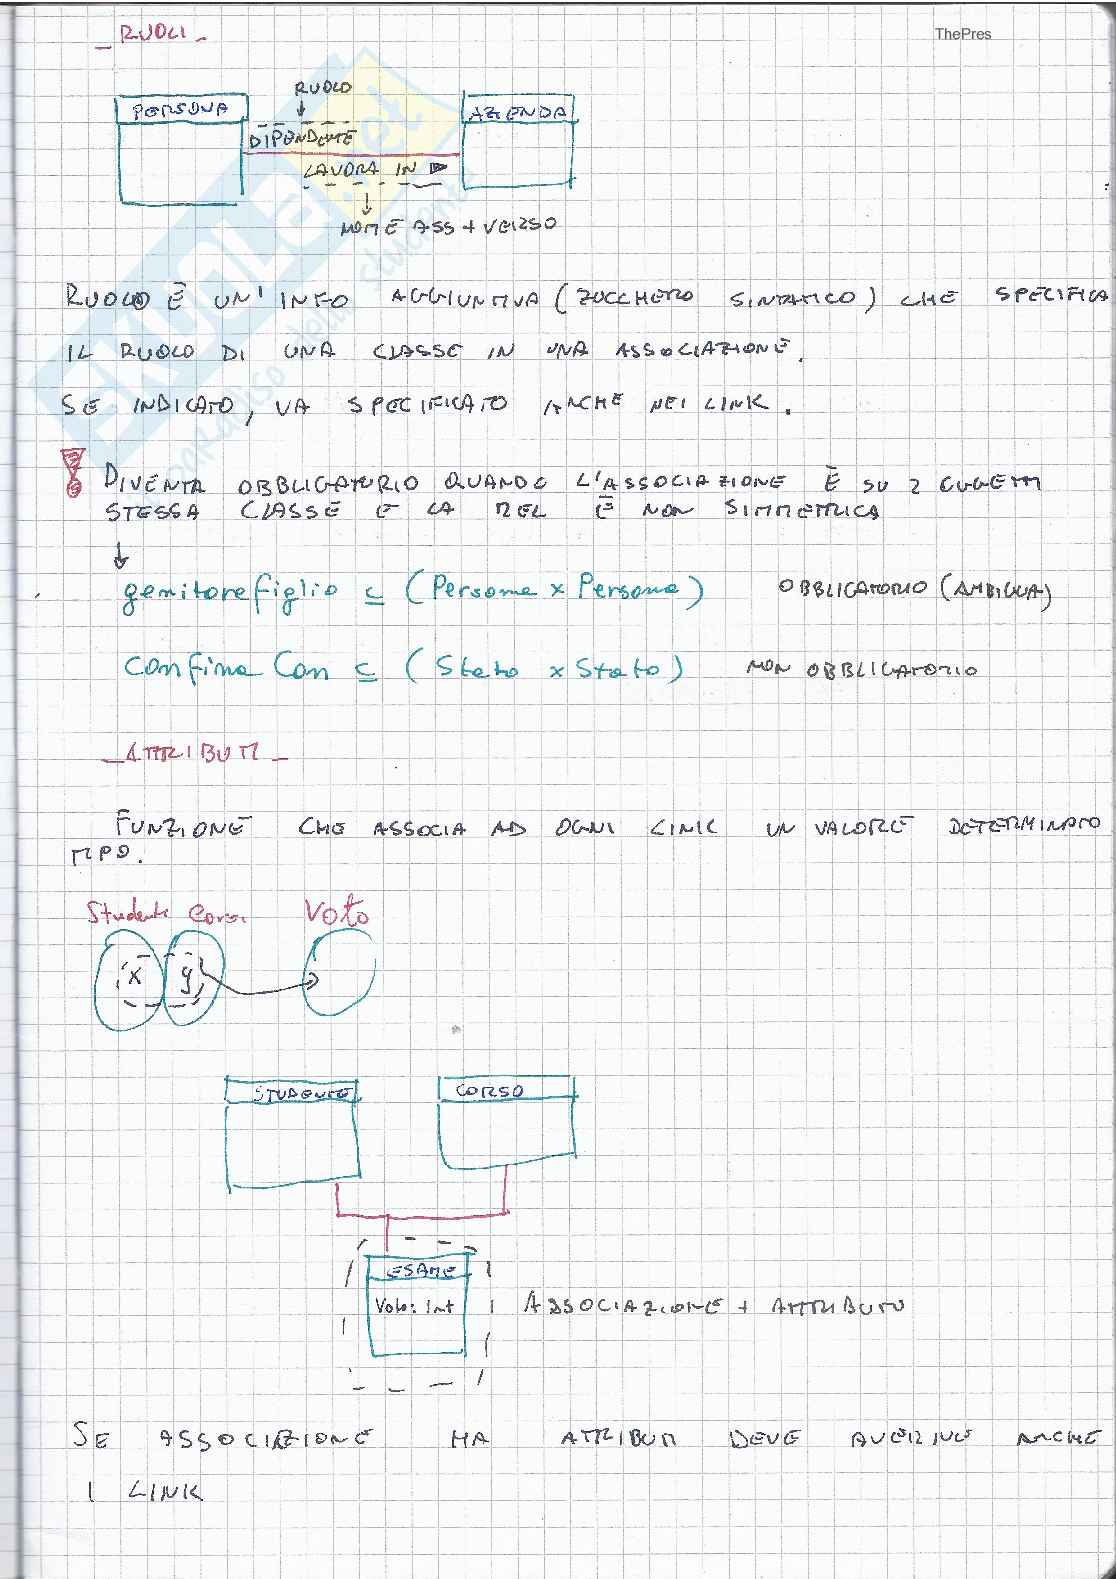 _ RUOLI _
ThePres
RUOLO
PERSONA
AZIENDA
DIPENDENTE
LAVORA IN
NOME ASS + VERSO
RUOLO È UN'INFO AGGIUNTIVA (ZUCCHERO SINTATTICO) CHE SPECIFICA
IL RUOLO DI UNA CLASSE IN UNA ASSOCIAZIONE.
SE INDICATO, VA SPECIFICATO ANCHE NEI LINK.
DIVENTA OBBLIGATORIO QUANDO L'ASSOCIAZIONE È SU 2 OGGETTI
STESSA CLASSE E LA REL È NON SIMMETRICA
genitorefiglio ⊆ (Persona x Persona) OBBLIGATORIO (AMBIGUA)
Confina Con ⊆ (Stato x Stato) NON OBBLIGATORIO
_ ATTRIBUTI _
FUNZIONE CHE ASSOCIA AD OGNI LINK UN VALORE DETERMINATO
TIPO.
Studenti Corsi Voto
x y
STUDENTE CORSO
ESAME
Voto: Int ASSOCIAZIONE + ATTRIBUTO
SE ASSOCIAZIONE HA ATTRIBUTI DEVE AVERNE ANCHE
I LINK